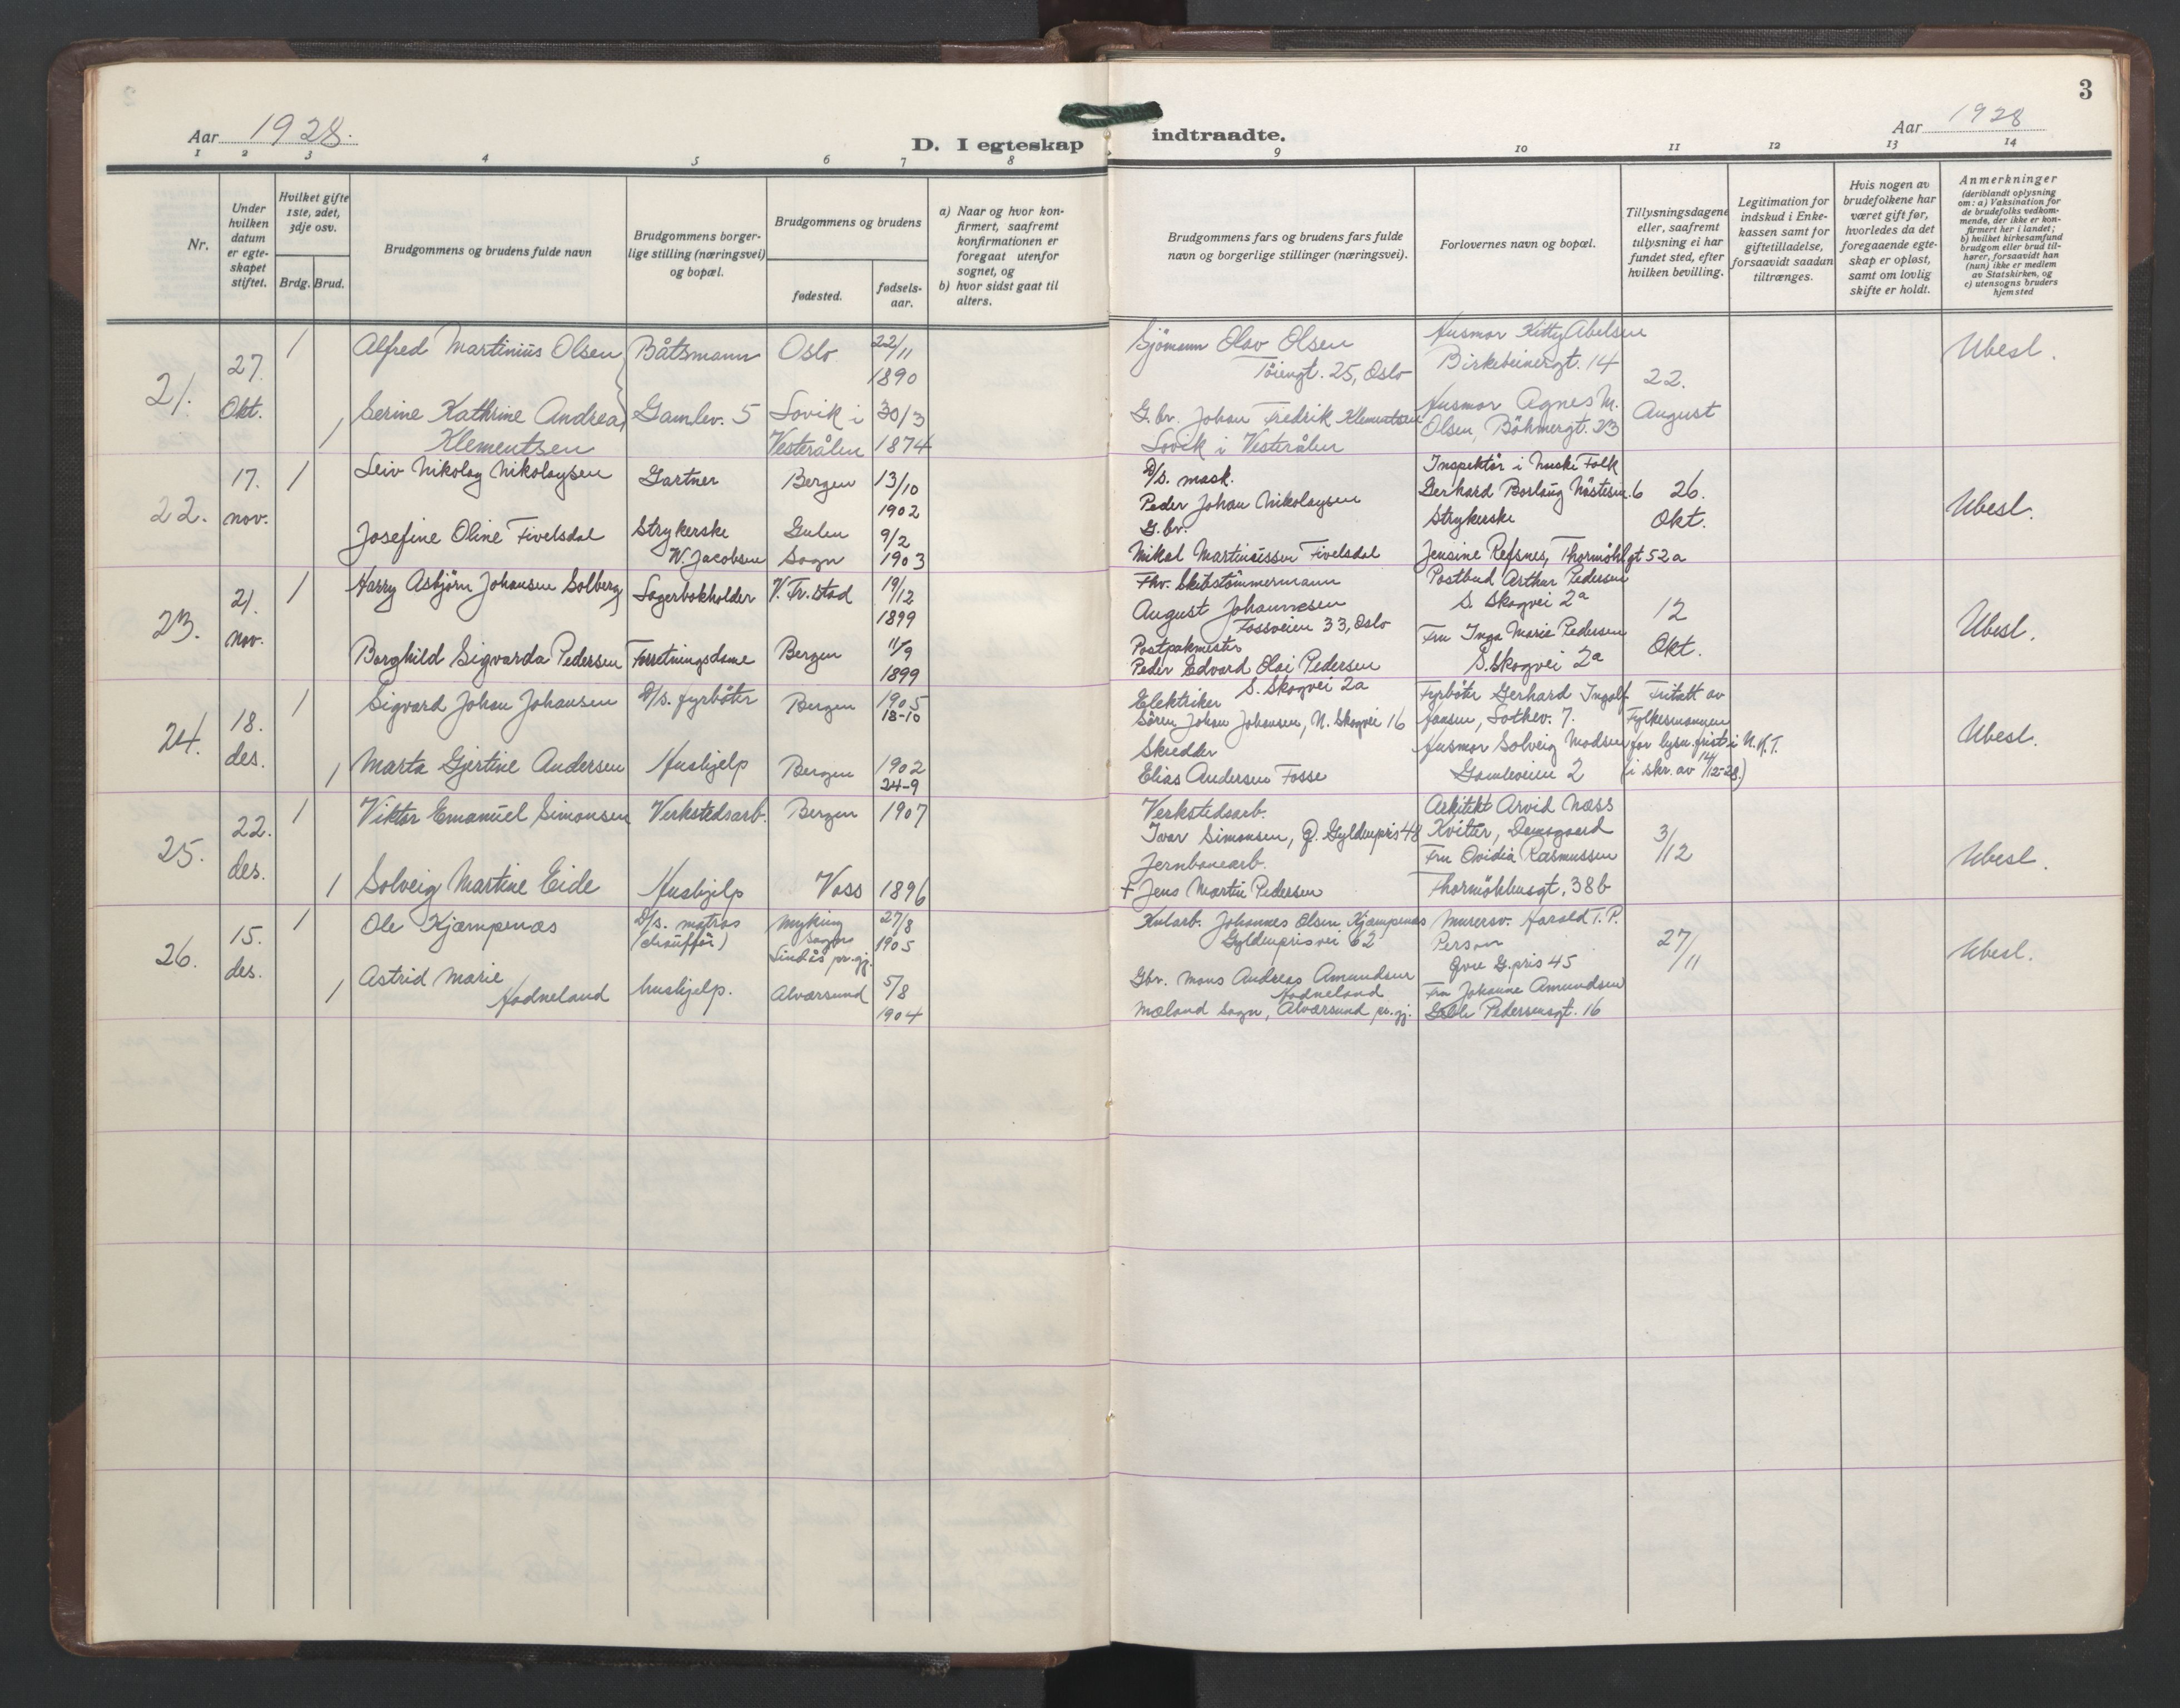 3
Aar 1928.
D. I egteskap indtraadte.
Aar 1928
1 2 3 4 5 6 7 8 9 10 11 12 13 14
Nr.
Under hvilken datum er egteskapet stiftet.
Hvilket gifte 1ste, 2det, 3dje osv.
Brdg. Brud.
Brudgommens og brudens fulde navn
Brudgommens borgerlige stilling (næringsvei) og bopæl.
Brudgommens og brudens
fødested.
fødselsaar.
a) Naar og hvor konfirmert, saafremt konfirmationen er foregaat utenfor sognet, og
b) hvor sidst gaat til alters.
Brudgommens fars og brudens fars fulde navn og borgerlige stillinger (næringsvei).
Forlovernes navn og bopæl.
Tillysningsdagene eller, saafremt tillysning ei har fundet sted, efter hvilken bevilling.
Legitimation for indskud i Enkekassen samt for giftetilladelse, forsaavidt saadan tiltrænges.
Hvis nogen av brudefolkene har været gift før, hvorledes da det foregaaende egteskap er opløst, samt om lovlig skifte er holdt.
Anmerkninger
(deriblandt oplysning om: a) Vaksination for de brudefolks vedkommende, der ikke er konfirmert her i landet;
b) hvilket kirkesamfund brudgom eller brud tilhører, forsaavidt han (hun) ikke er medlem av Statskirken, og
c) utensogns bruders hjemsted
21.
27. Okt.
1
Alfred Martinius Olsen
Båtsmann
Oslo
22/11 1890
Sjömann Olav Olsen
Töiengt. 25, Oslo
Husmor Kitty Abelsen
Birkebeinergt. 14
22. August
Ubesl.
1
Serine Kathrine Andrea
Klementsen
Gamlev. 5
Lovik i
Vesterålen
30/3
1874
G.br. Johan Fredrik Klementsen
Lovik i Vesterålen
Husmor Agnes M.
Olsen, Böhmergt. 23
22.
17. nov.
1
Leiv Nikolay Nikolaysen
Gartner
Bergen
13/10
1902
D/s. mask.
Peder Johan Nikolaysen
Inspektör i Norske Folk
Gerhard Nöstesm. 6
26. Okt.
Ubesl.
Josefine Oline Fivelsdal
Strykerske
W. Jacobsen
Gulen
Sogn
9/2
1903
G.br.
Mikal Martinussen Fivelsdal
Strykerske
Jensine Refsnes, Thormöhlgt 52a
23.
21. nov.
1
Harry Asbjörn Johansen Solberg
Lagerbokholder
V. Fr.stad
19/12
1899
Fhv. Skibstömmermann
August Johannesen
Fossveien 33, Oslo
Postbud Arthur Pedersen
S. Skogvei 2a
12 Okt.
Ubesl.
Borghild Sigvarda Pedersen
Forretningsdame
Bergen
11/9
1899
Postpakmester
Peder Edvard Olai Pedersen
S. Skogvei 2a
Fru Inga Marie Pedersen
S. Skogvei 2a
24.
18. des.
1
Sigvard Johan Johansen
D/s. fyrböter
Bergen
1905
18-10
Elektriker
Sören Johan Johansen, N. Skogvei 16
Fyrböter Gerhard Ingolf
Hansen, Lothev. 7.
Fritatt av
Fylkesmannen
for lysn. frist i N.K.T.
(i skr. av 14/12-28.)
Ubesl.
1
Marta Gjertine Andersen
Hushjelp
Bergen
1902
24-9
Skredder
Elias Andersen Fosse
Husmor Solveig Madsen
Gamleveien 2
25.
22. des.
1
Viktor Emanuel Simonsen
Verkstedsarb.
Bergen
1907
Verkstedsarb.
Ivar Simonsen, Ø. Gyldenpris 48
Arkitekt Arvid Næss
Kviten, Damsgaard
3/12
Ubesl.
1
Solveig Martine Eide
Hushjelp
Voss
1896
Jernbanearb.
+ Jens Martin Pedersen
Fru Ovidia Rasmussen
Thormöhlensgt, 38b
26.
15. des.
1
Ole Kjæmpenæs
D/s. matros
(chauffør)
Myking
Sogn
Lindås pr.gj.
27/8
1905
Kularb. Johannes Olsen Kjæmpenæs
Gyldenprisvei 62
Murersv. Harald T. P.
Person
Øvre G.pris 45
27/11
Ubesl.
1
Astrid Marie
Hodneland
hushjelp.
Alværsund
5/8
1904
Gbr. Mons Andreas Amundsen
Hodneland
Mæland Sogn, Alværsund pr.gj.
Fru Johanne Amundsen
Gable Pedersensgt. 16